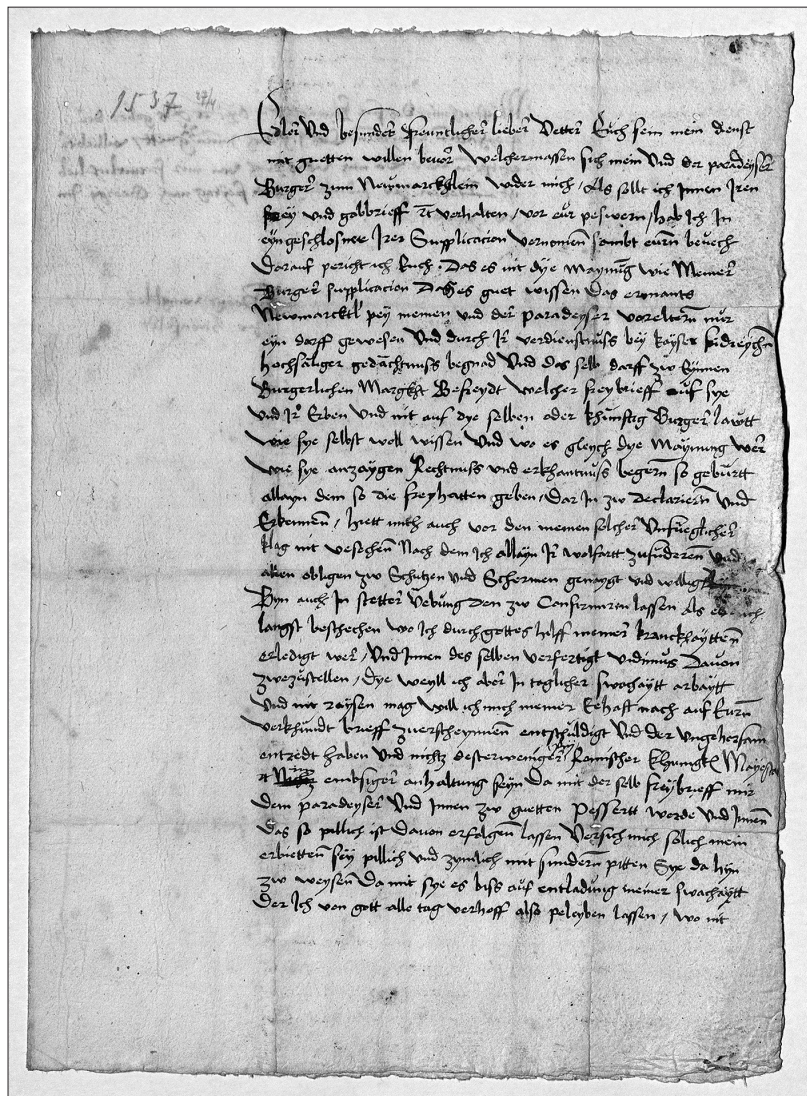 1537 27/4
Edler Und besunder freuntlicher lieber Vetter Euch sein mein dienst
mit guetten willen bevor Welchermassen sich mein Und der paradeyser
Burger zum Neumarcktlein wider mich / Als sollt ich Innen Iren
frey und gabbrieff verhalten / vor eur peswern / hab ich In
eyngeschlosner Irer Supplicacion vernomen sambt eurn bevech
Darauf pericht ich Euch Das es nit dye maynung wie Meiner
Burger supplicacion Das es guet wissen Das ermants
Newmarcktl pey meinen und der paradeyser voreltern nur
eyn dorff gewesen Und durch Ir verdienstnuss bey kayser fridreychn
hochsaliger gedachtnuss begnad Und das selb dorff zw Eynnen
Burgerlichen Marckht Befreydt welcher freybrieff auf sye
und Ir Erben Und nit auf dye selben oder khunftig Burger lawtt
wie sye selbst woll wissen Und wo es gleych dye Maynung wer
wie sye anzaygen Rechtnuss und erkhantnuss begern so geburtt
allayn dem so die freyhatten geben / Dar In zw Declariern Und
Erkennen / hiett mich auch vor den meinen solcher Unfueglicher
klag nit vesehen Nach dem Ich allayn Ir wolfartt zufuderen Und
allen obligen zw Schutzen Und Schermen genaygt und willig
Byn auch In stetter Uebung Den zw Confirmirn lassen Als es auch
langst beschechen wo Ich durch gottes hilff meiner kranckhaytten
erledigt wer / Und Innen des selben verfertigt vidimus Davon
zwezustellen / Dye weyll ich aber In taglicher swachaytt arbaytt
Und nit raysen mag will ich mich meiner Ehaft nach auf Eurn
verkhundt brieff zuerscheynnen entschuldigt Und der Ungehorsam
entredt haben Und nichtz desterweniger Romischer Khungkl Mayestat
embsiger anhaltung seyn Da mit der selb freybrieff mir
dem paradeyser Und Innen zw guetten Pessertt werde Und Innen
Das so pillich ist Davon erfolgen lassen Versich mich solich mein
erbietten sey pillich und zymlich mit sundern pitten Sye da hyn
zw weysen Da mit sye es biss auf entladung meiner swachaytt
Der Ich von gott alle tag verhoff also peleyben lassen / wo nit